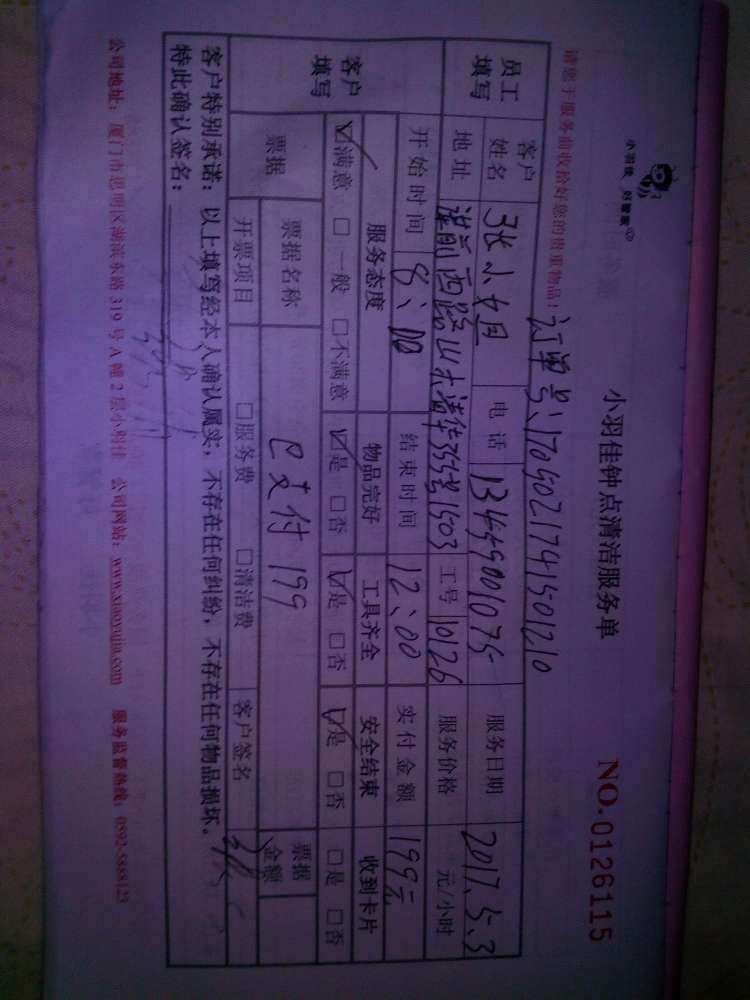 小羽佳 好管家
小羽佳钟点清洁服务单 NO.0126115
请您于服务前收拾好您的贵重物品! 订单号、1705021741501210
员工填写 客户姓名 张小姐 电话 13459001075 服务日期 2017.5.3
地址 1503 工号 10126 服务价格 元/小时
客户填写 开始时间 8、00 结束时间 12、00 实付金额 199元
服务态度 物品完好 工具齐全 安全结束 收到卡片
☑满意 □一般 □不满意 ☑是 □否 ☑是 □否 ☑是 □否 □是 □否
票据 票据名称 已支付199 票据金额
开票项目 □服务费 □清洁费 客户签名
客户特别承诺：以上填写经本人确认属实，不存在任何纠纷，不存在任何物品损坏。
特此确认签名：
公司地址：厦门市思明区湖滨东路319号A幢2层小羽佳 公司网站：www.xiaoyujia.com 服务监督热线：0592-5888123